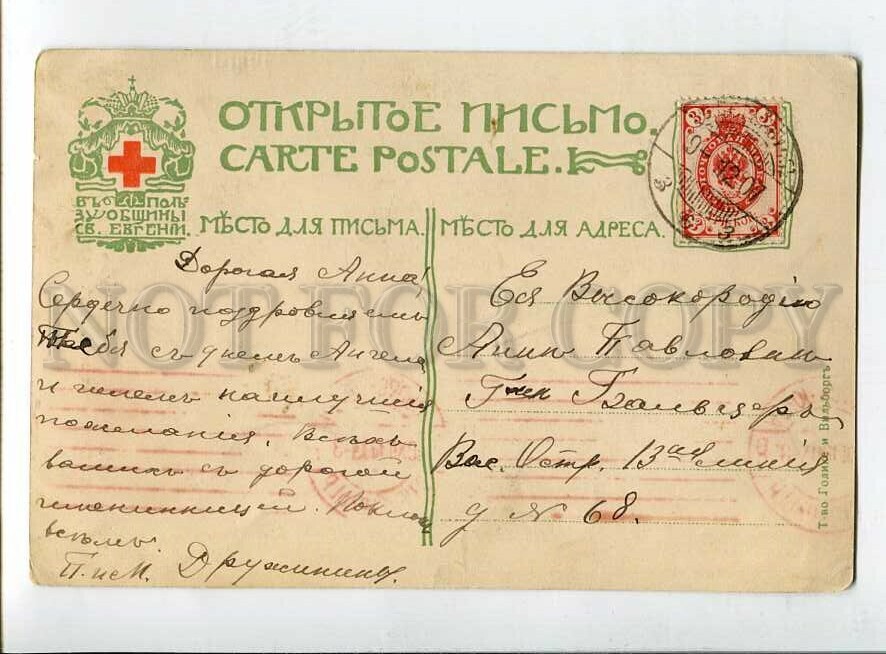 ОТКРЫТОЕ ПИСЬМО.
CARTE POSTALE.
ВЪ ПОЛЬ
ЗУ ОБЩИНЫ
СВ. ЕВГЕНІИ.
МѢСТО ДЛЯ ПИСЬМА.
МѢСТО ДЛЯ АДРЕСА.
3 3
3 3
12 07
Дорогая Анна!
Сердечно поздровляемъ
Тебя съ днемъ Ангела
и шлемъ наилучшія
пожеланія. Всѣхъ
вашихъ съ дорогой
именинницей. Поклон
всѣмъ.
П. и М. Дружинины.
Ея Высокородію
Аннѣ Павловнѣ
Г-жѣ Бальцеръ
Вас. Остр. 13ая линія
д № 68.
Т-во Голике и Вильборгъ
NOT FOR COPY